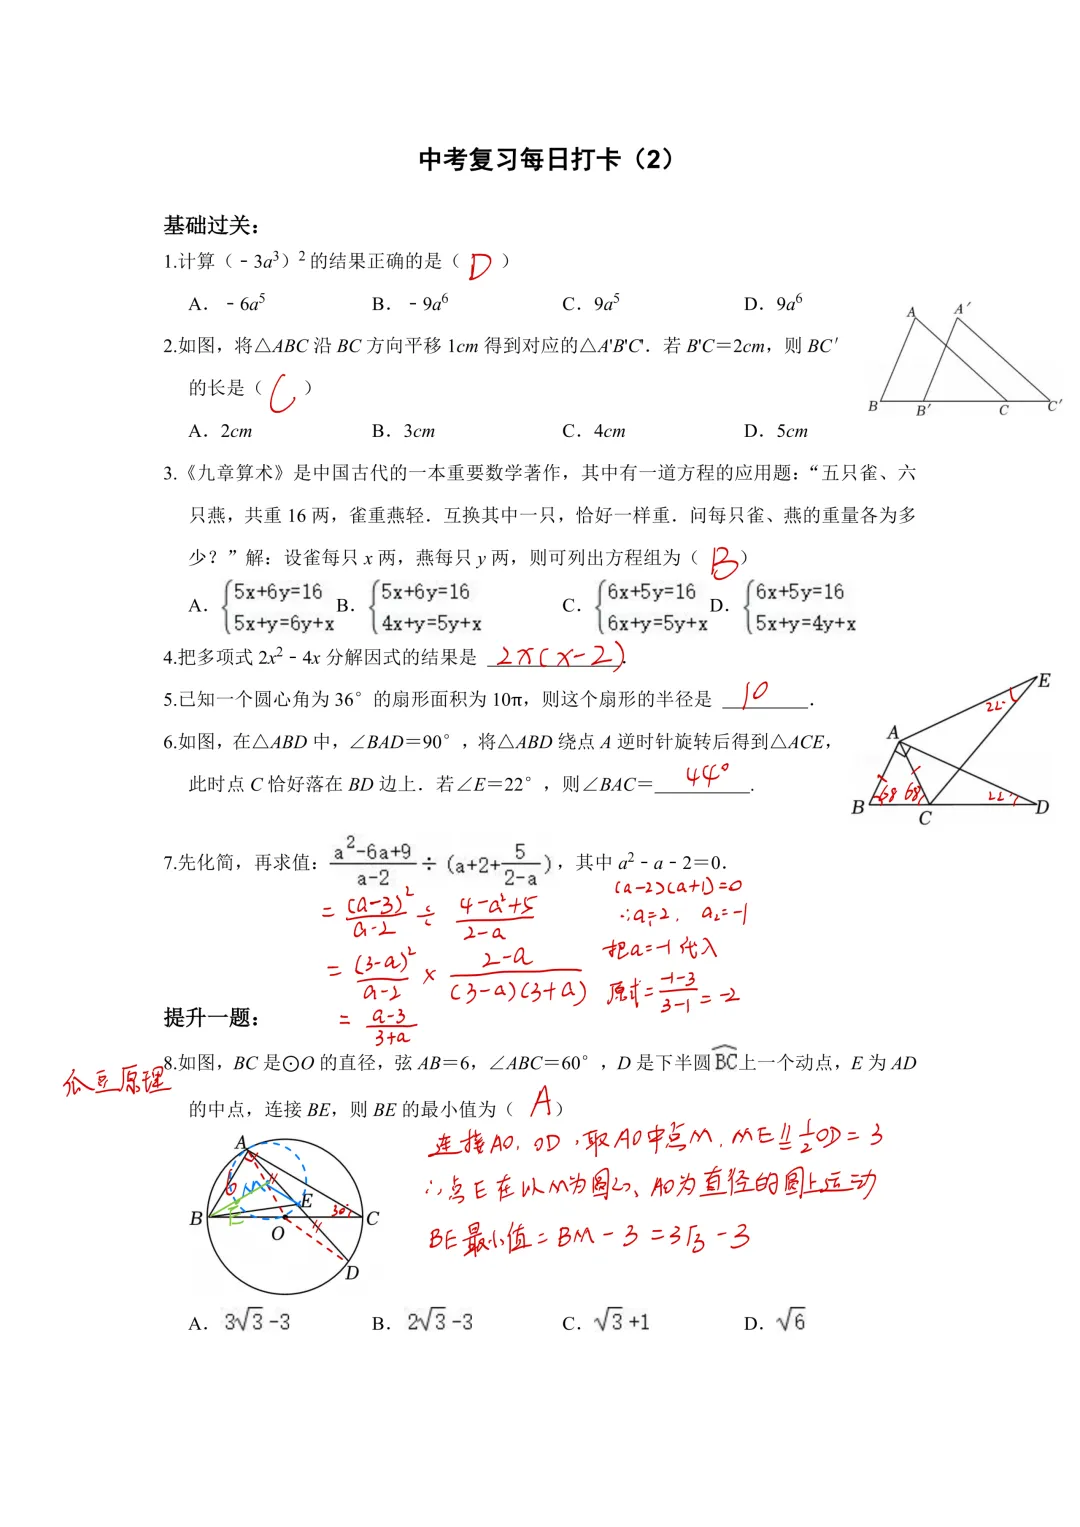 中考复习每日打卡（2）
基础过关：
1.计算（﹣3a³）² 的结果正确的是（ D ）
A．﹣6a⁵ B．﹣9a⁶ C．9a⁵ D．9a⁶
2.如图，将△ABC 沿 BC 方向平移 1cm 得到对应的△A'B'C'．若 B'C＝2cm，则 BC′
的长是（ C ）
A．2cm B．3cm C．4cm D．5cm
A A′
B B′ C C′
3.《九章算术》是中国古代的一本重要数学著作，其中有一道方程的应用题：“五只雀、六
只燕，共重 16 两，雀重燕轻．互换其中一只，恰好一样重．问每只雀、燕的重量各为多
少？”解：设雀每只 x 两，燕每只 y 两，则可列出方程组为（ B ）
A．{5x+6y=16 B．{5x+6y=16 C．{6x+5y=16 D．{6x+5y=16
5x+y=6y+x 4x+y=5y+x 6x+y=5y+x 5x+y=4y+x
4.把多项式 2x²﹣4x 分解因式的结果是 2x(x-2)．
5.已知一个圆心角为 36°的扇形面积为 10π，则这个扇形的半径是 10．
6.如图，在△ABD 中，∠BAD＝90°，将△ABD 绕点 A 逆时针旋转后得到△ACE，
此时点 C 恰好落在 BD 边上．若∠E＝22°，则∠BAC＝ 44° .
E
22°
A
B 68 68 22° D
C
7.先化简，再求值：(a²-6a+9)/(a-2) ÷ (a+2+5/(2-a))，其中 a²﹣a﹣2＝0．
= (a-3)²/(a-2) ÷ (4-a²+5)/(2-a)
= (3-a)²/(a-2) × (2-a)/((3-a)(3+a))
= (a-3)/(3+a)
(a-2)(a+1)=0
∴a₁=2, a₂=-1
把a=-1代入
原式=(-1-3)/(3-1)=-2
提升一题：
瓜豆原理
8.如图，BC 是⊙O 的直径，弦 AB＝6，∠ABC＝60°，D 是下半圆BC上一个动点，E 为 AD
的中点，连接 BE，则 BE 的最小值为（ A ）
A
6 M
B E 30° C
E
O
D
连接AO, OD, 取AO中点M, ME∥=½OD=3
∴点E在以M为圆心、AO为直径的圆上运动
BE最小值=BM-3=3√3-3
A．3√3-3 B．2√3-3 C．√3+1 D．√6